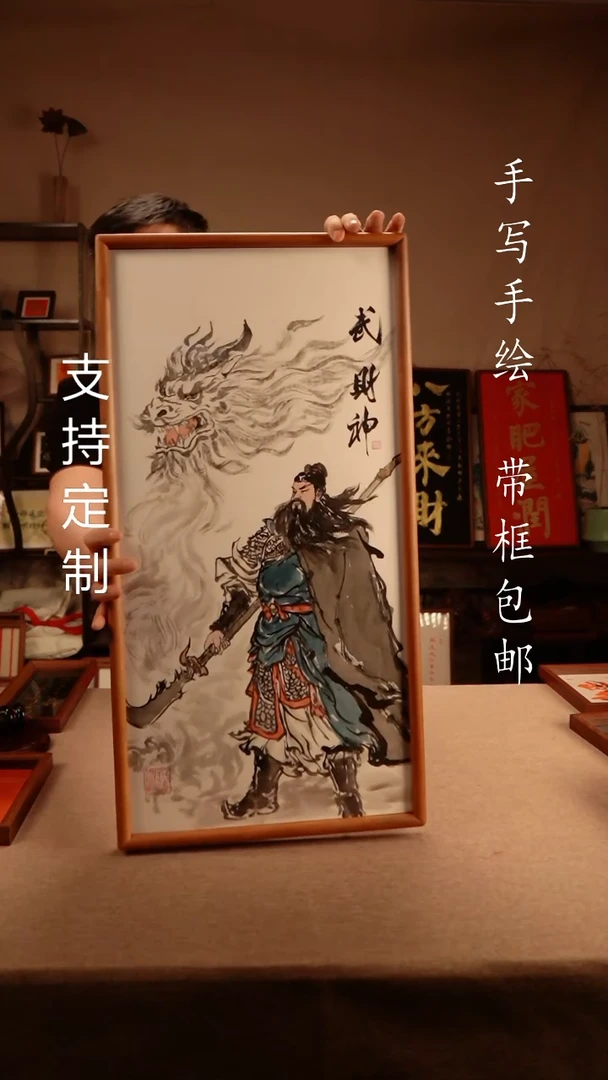 手写手绘 带框包邮
支持定制
武财神
八方来财
家肥屋润